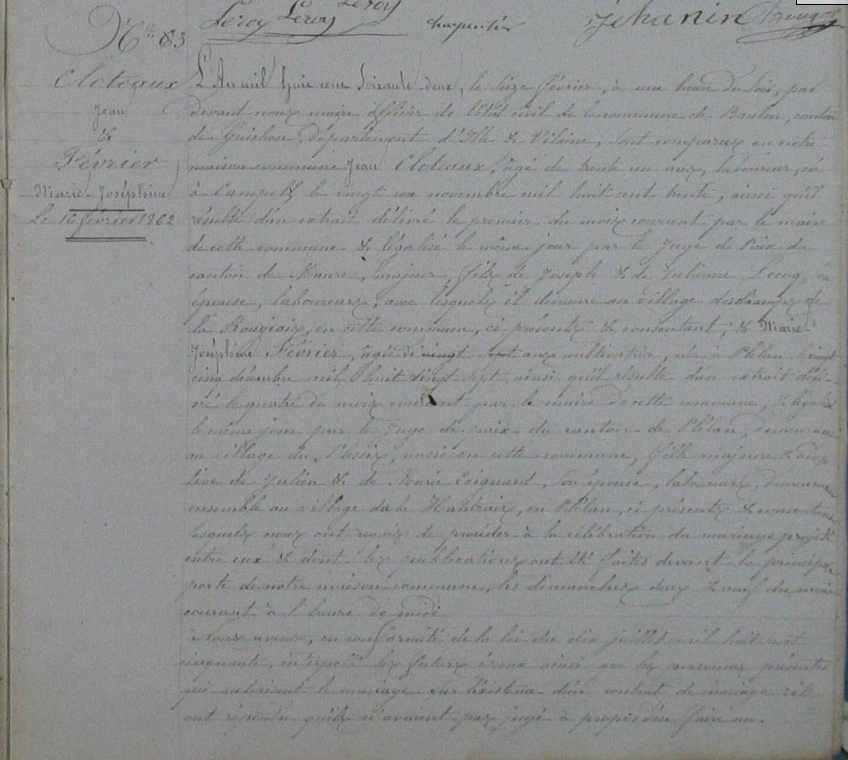 Leroy Leroy Leroy
charpentier
Jehanin
N° 83
Cloteaux
Jean
&
Février
Marie-Joséphine
Le 16 février 1862
L'An mil huit cent Soixante-deux, le Seize février, à une heure du soir, par
devant nous maire officier de l'état civil de la commune de Baulon, canton
de Guichen, département d'Ille & Vilaine, sont comparus en notre
maison commune Jean Cloteaux, âgé de trente un ans, laboureur, né
à Campel, le vingt un novembre mil huit cent trente, ainsi qu'il
résulte d'un extrait délivré le premier du mois courant par le maire
de cette commune & légalisé le même jour par le Juge de Paix du
canton de Maure, majeur, fils de Joseph & de Julienne Lecoq, son
épouse, laboureurs, avec lesquels il demeure au village des champs de
la Rougiais, en cette commune, ci présents & consentant ; & Marie-
Joséphine Février, âgée de vingt sept ans cultivatrice, née à Plélan
cinq décembre mil huit vingt sept, ainsi qu'il résulte d'un extrait déli-
vré le quatre du mois courant par le maire de cette commune, & légalisé
le même jour par le Juge de paix du canton de Plélan, demeurant
au village du Plessix, aussi en cette commune, fille majeure & adop
tive de Julien & de Marie Coignard, son épouse, laboureurs, demeurant
ensemble au village de la en Plélan, ci présents & consentants
lesquels nous ont requis de procéder à la célébration du mariage projeté
entre eux & dont les publications ont été faites devant la principale
porte de notre maison commune, les dimanches deux & neuf du mois
courant à l'heure de midi
Nous avons, en conformité de la loi du dix juillet mil huit cent
cinquante, interpellé les futurs époux ainsi que les personnes présentes
qui autorisent le mariage sur l'existence d'un contrat de mariage ils
ont répondu qu'ils n'avaient pas jugé à propos d'en faire un.